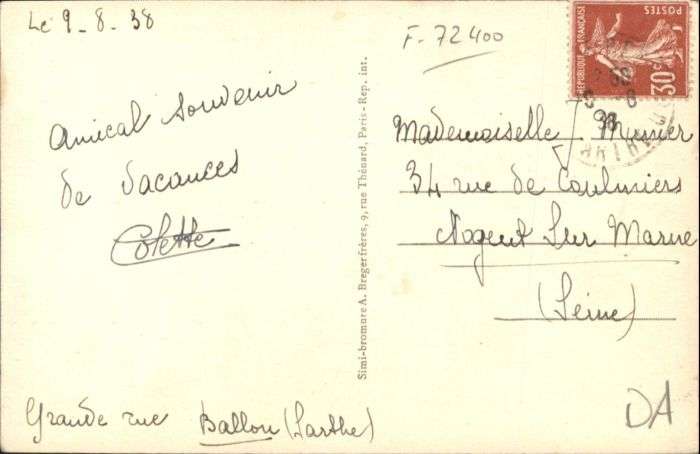 Le 9-8-38
F-72400
POSTES
REPUBLIQUE FRANÇAISE
30c
Amical souvenir
de vacances
Colette
Mademoiselle J Musnier
34 rue de Coulmiers
Nogent Sur Marne
(Seine)
Simi-bromure A. Breger frères, 9, rue Thénard, Paris - Rep. int.
Grande rue Ballon (Sarthe)
DA